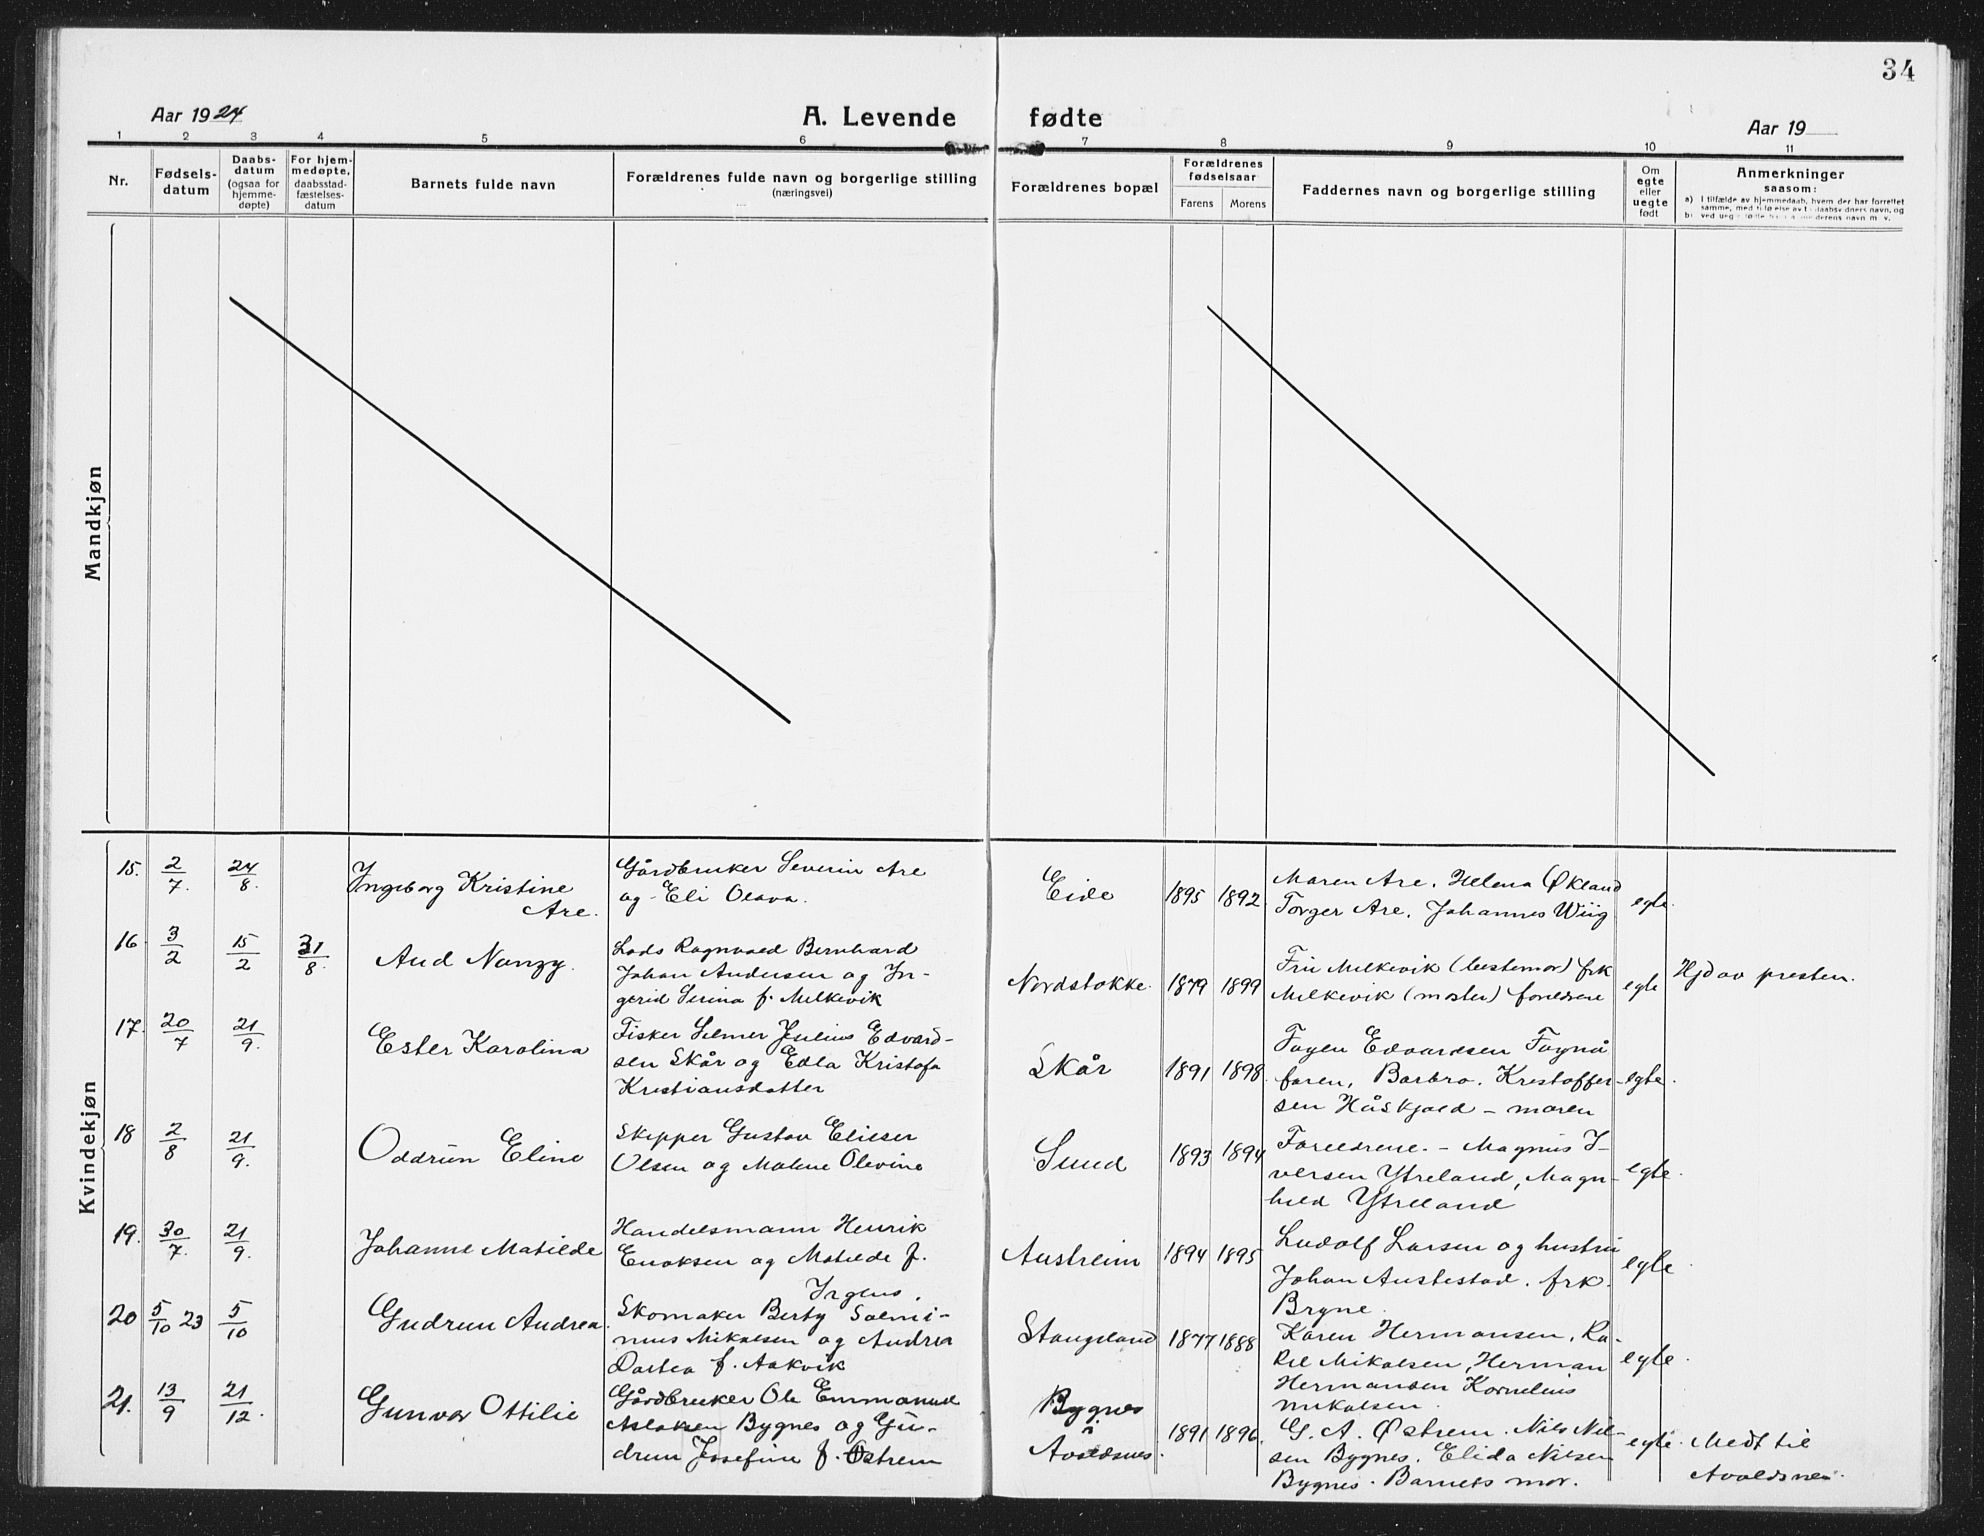 34
Aar 1924 A. Levende fødte Aar 19
1 2 3 4 5 6 7 8 9 10 11
Nr.
Fødsels-
datum
Daabs-
datum
(ogsaa for
hjemme-
døpte)
For hjem-
medøpte,
daabsstad-
fæstelses-
datum
Barnets fulde navn
Forældrenes fulde navn og borgerlige stilling
(næringsvei)
Forældrenes bopæl
Forældrenes
fødselsaar
Farens Morens
Faddernes navn og borgerlige stilling
Om
egte
eller
uegte
født
Anmerkninger
saasom:
a) I tilfælde av hjemmedaab, hvem der har forrettet
samme, med tilføielse av daabsvidners navn, og
b) ved uegte fødte
Mandkjøn
Kvindekjøn
15. 2/7. 24/8.
Ingeborg Kristine
Are.
Gårdbruker Severin Are
og Eli Olava.
Eide
1895 1892
Maren Are. Helena Økland
Torger Are. Johannes Wiig
egte.
16. 3/2 15/2 31/8.
Aud Nanzy.
Lods Ragnvald Bernhard
Johan Andersen og In-
gerid Serina f. Milkevik
Nordstokke.
1879 1899
Fru Milkevik (bestemor) frk
Milkevik (moster) foreldrene
egte
Hjd av presten.
17. 20/7 21/9.
Ester Karolina
Fisker Selmer Julius Edvard-
sen Skår og Edla Kristofa
Kristiansdatter
Skår
1891 1898.
Edvardsen Fagnå
faren, Barbro. Kristoffer-
sen Håskjold - moren
egte.
18 2/8 21/9.
Oddrun Eline
Skipper Gustav Elieser
Olsen og Malene Olevine
Sund
1893 1894
Foreldrene. - Magnus I-
versen Ytreland, Magn-
hild Ytreland
egte.
19. 30/7. 21/9.
Johanne Matilde
Handelsmann Henrik
Enoksen og Matilde f.
Irgens.
Austreim
1894 1895
Ludolf Larsen og hustru
Johan Austestad. frk.
Bryne.
egte.
20 5/10 23 5/10
Gudrun Andrea.
Skomaker Berty Salmi-
nius Mikalsen og Andrea
Dortea f. Aakvik
Stangeland
1877 1888
Karen Hermansen, Ra-
kel Mikalsen, Herman
Hermansen Kornelius
Mikalsen.
egte.
21. 13/9 21/12.
Gunvor Ottilie
Gårdbruker Ole Emmanuel
Aslaksen Bygnes og Gu-
drun Josefine f. Østrem
Bygnes
i
Avaldsnes.
1891 1896.
G. A. Østrem. Nils Nil-
sen Bygnes. Elida Nilsen
Bygnes. Barnets mor.
egte.
Medt til
Avaldsnes.